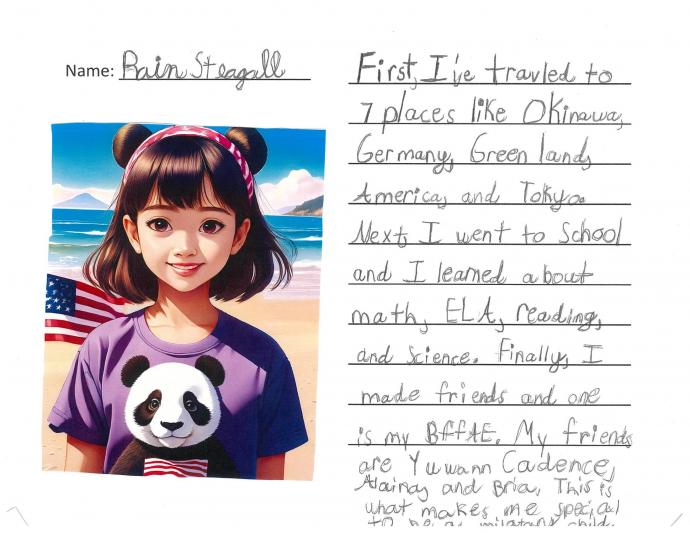 Name: Rain Steagall
First, I've travled to
7 places like Okinawa,
Germany, Green land,
America, and Tokyo.
Next, I went to School
and I learned about
math, ELA, reading,
and Science. Finally, I
made friends and one
is my BffAE. My friends
are Yuwann Cadence,
Alaina, and Bria. This is
what makes me special
to be a military child.